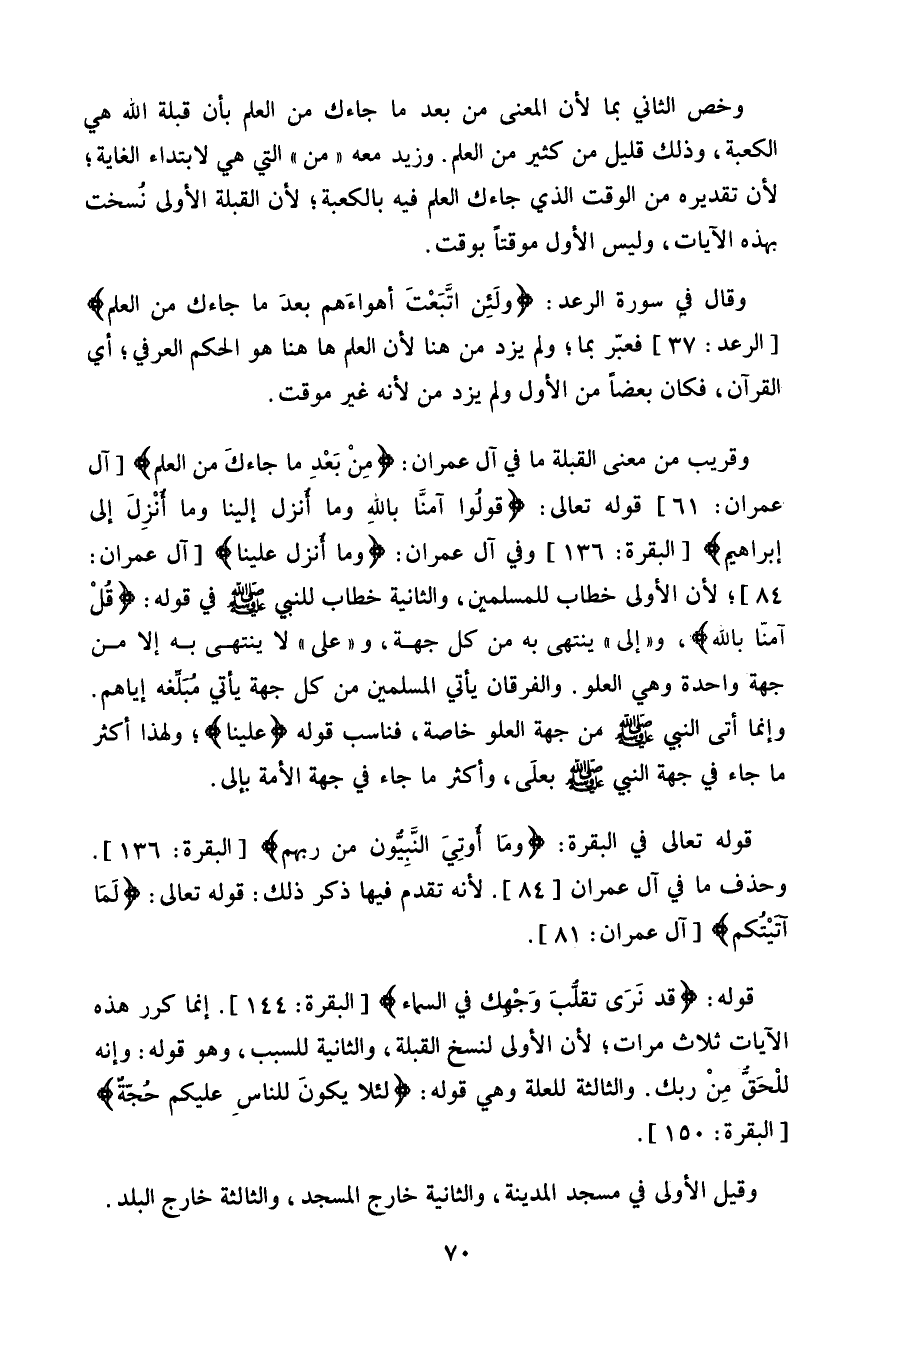 وخص الثاني بما لأن المعنى من بعد ما جاءك من العلم بأن قبلة الله هي
الكعبة، وذلك قليل من كثير من العلم. وزيد معه «من» التي هي لابتداء الغاية؛
لأن تقديره من الوقت الذي جاءك العلم فيه بالكعبة؛ لأن القبلة الأولى نُسخت
بهذه الآيات، وليس الأول موقتاً بوقت.
وقال في سورة الرعد: ﴿ولَئِن اتَّبَعْتَ أهواءَهم بعدَ ما جاءك من العلم﴾
[الرعد: ٣٧] فعبّر بما؛ ولم يزد من هنا لأن العلم ها هنا هو الحكم العرفي؛ أي
القرآن، فكان بعضاً من الأول ولم يزد من لأنه غير موقت.
وقريب من معنى القبلة ما في آل عمران: ﴿مِنْ بَعْدِ ما جاءكَ من العلم﴾ [آل
عمران: ٦١] قوله تعالى: ﴿قولُوا آمنَّا باللهِ وما أنزل إلينا وما أُنْزِلَ إلى
إبراهيم﴾ [البقرة: ١٣٦] وفي آل عمران: ﴿وما أنزل علينا﴾ [آل عمران:
٨٤]؛ لأن الأولى خطاب للمسلمين، والثانية خطاب للنبي ﷺ في قوله: ﴿قُلْ
آمنّا بالله﴾، و«إلى» ينتهى به من كل جهـة، و«على» لا ينتهـى بـه إلا مـن
جهة واحدة وهي العلو. والفرقان يأتي المسلمين من كل جهة يأتي مُبَلِّغه إياهم.
وإنما أتى النبي ﷺ من جهة العلو خاصة، فناسب قوله ﴿علينا﴾؛ ولهذا أكثر
ما جاء في جهة النبي ﷺ بعلَى، وأكثر ما جاء في جهة الأمة بإلى.
قوله تعالى في البقرة: ﴿ومَا أُوتِيَ النَّبِيُّون من ربهم﴾ [البقرة: ١٣٦].
وحذف ما في آل عمران [٨٤]. لأنه تقدم فيها ذكر ذلك: قوله تعالى: ﴿لَمَا
آتَيْتُكم﴾ [آل عمران: ٨١].
قوله: ﴿قد نَرَى تقلُّبَ وَجْهِك في السماء﴾ [البقرة: ١٤٤]. إنما كرر هذه
الآيات ثلاث مرات؛ لأن الأولى لنسخ القبلة، والثانية للسبب، وهو قوله: وإنه
للْحَقُّ مِنْ ربك. والثالثة للعلة وهي قوله: ﴿لئلا يكونَ للناسِ عليكم حُجّةٌ﴾
[البقرة: ١٥٠].
وقيل الأولى في مسجد المدينة، والثانية خارج المسجد، والثالثة خارج البلد.
٧٠